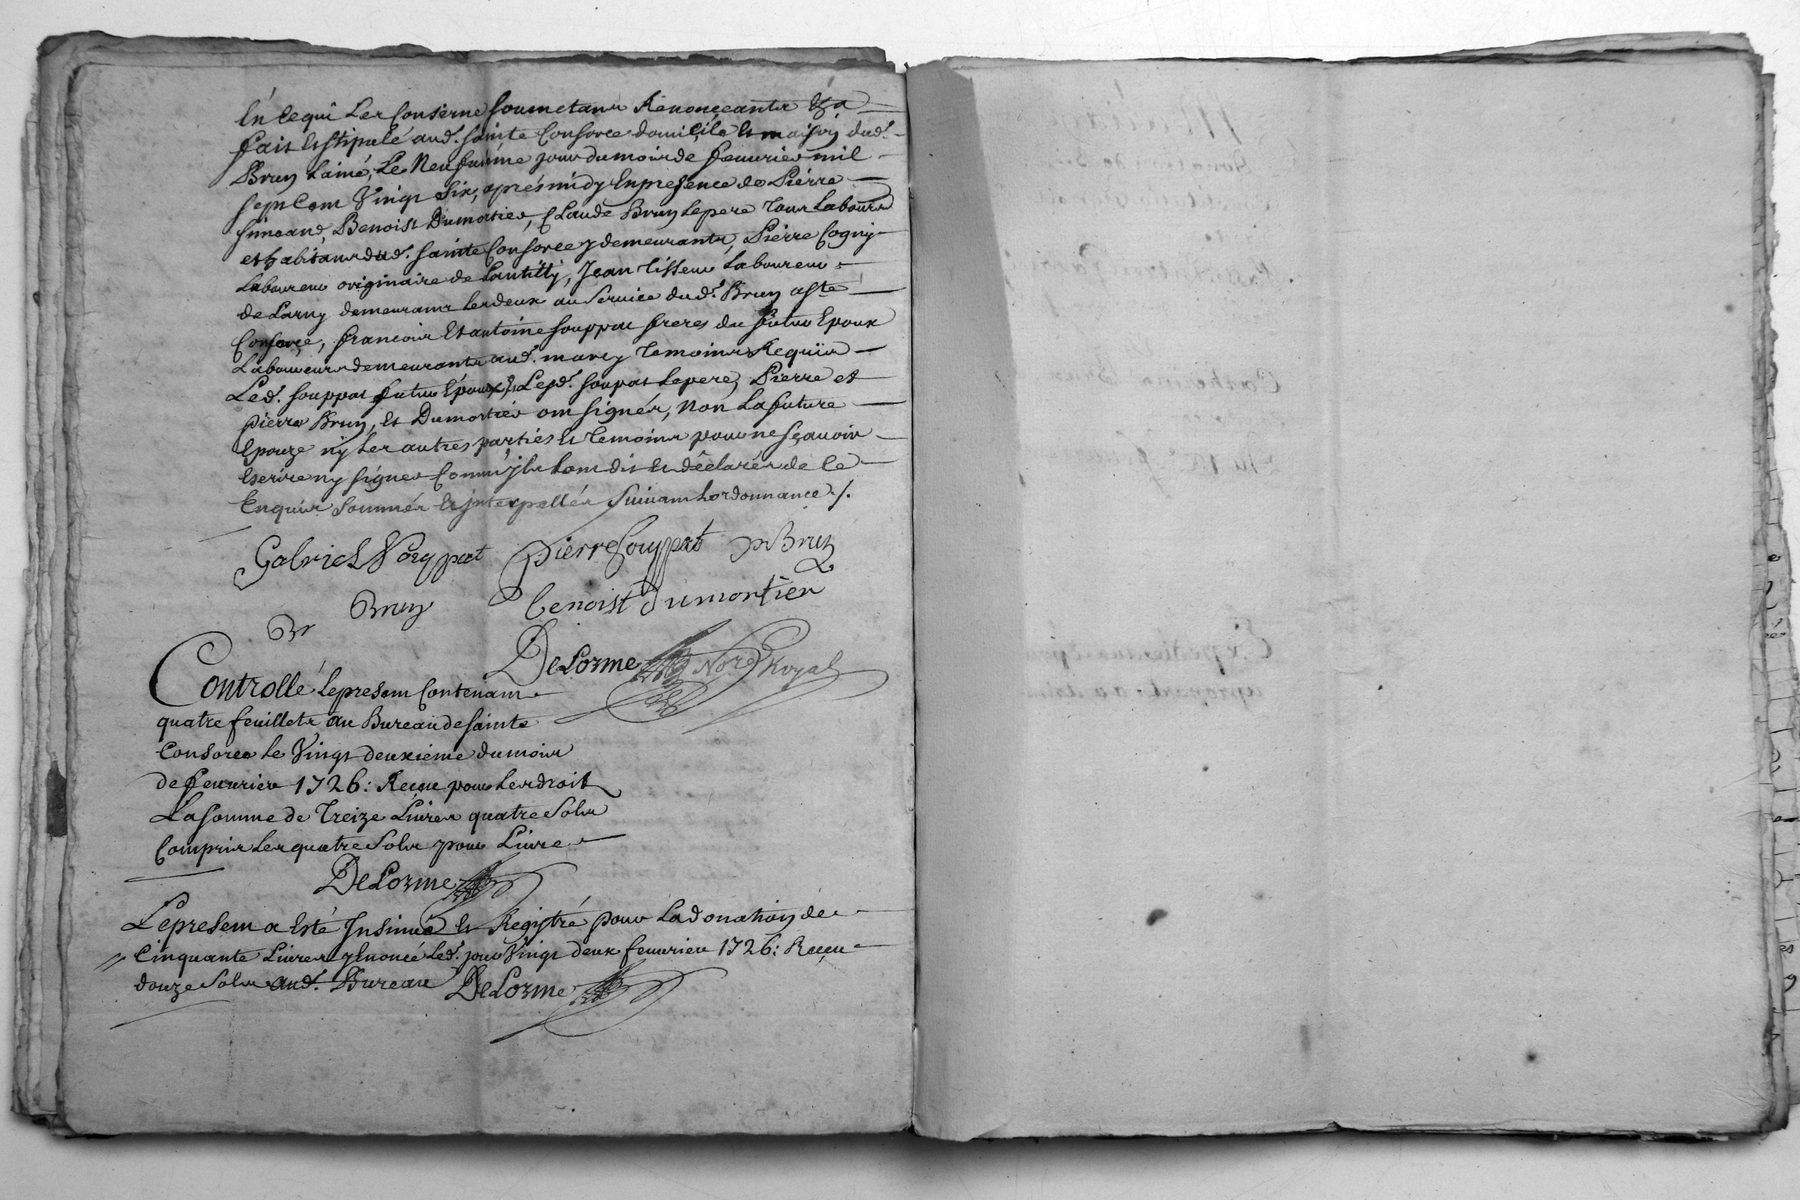 En ce qui les Conserne soumetans Renonceants &a
fait et stipulé aud. sainte Consorce domicile et maison dud.
Brun Lainé, Le Neufuiême jour du mois de feuurier mil
sept Cent Vingt Six, aprés midy En presence de Pierre
Benoist Dumortier, Claude Brun le pere tous Labours
et habitans dud. sainte Consorce y demeurants, Pierre Cogny
Laboureur originaire de Lentilly, Jean Tisseur Laboureur
de Larny demeurans les deux au Seruice dud. Brun aste
Consorce, francois Et antoine souppat freres du futur Epoux
Laboureurs demeurants aud. marcy temoins Requis
Led. souppat futur Epoux, Lesd. soupat le pere, Pierre et
pierre Brun, et Dumortier ont signés, Non La future
Epouze ny les autres parties et temoins pour ne sçauoir
Escrire ny signer Comm'jls l'ont dit et déclarés de ce
Enquis Sommés et jnterpellés Suiuant Lordonnance ./.
Gabriel Souppat pierre Souppat P Brun
Br Brun benoist dumortier
DeLorme Nore Royal
Controllé Le present Contenant
quatre feuillets au Bureau de Sainte
Consorce le Vingt deuxieme du mois
de feuurier 1726: Receu pour les droit
La somme de Treize Liures quatre Sols
Compris les quatre Sols pour Liure
DeLorme
Le present a Esté Jnsinué et Registré pour La donation de
Cinquante Liures y Enoncé Led. jour Vingt deux feuurier 1726: Receu
douze Sols aud. Bureau DeLorme